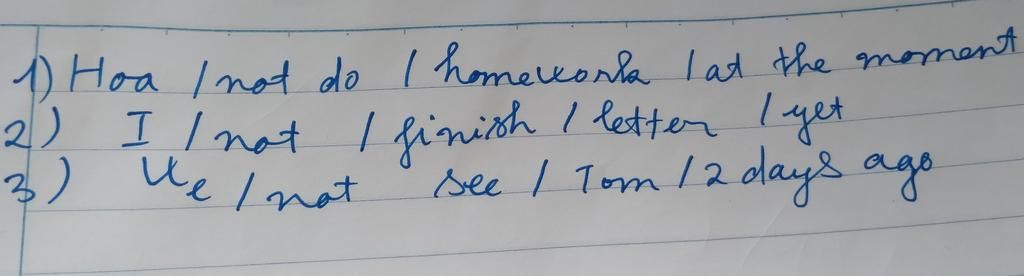 1) Hoa / not do / homework / at the moment
2) I / not / finish / letter / yet
3) We / not see / Tom / 2 days ago